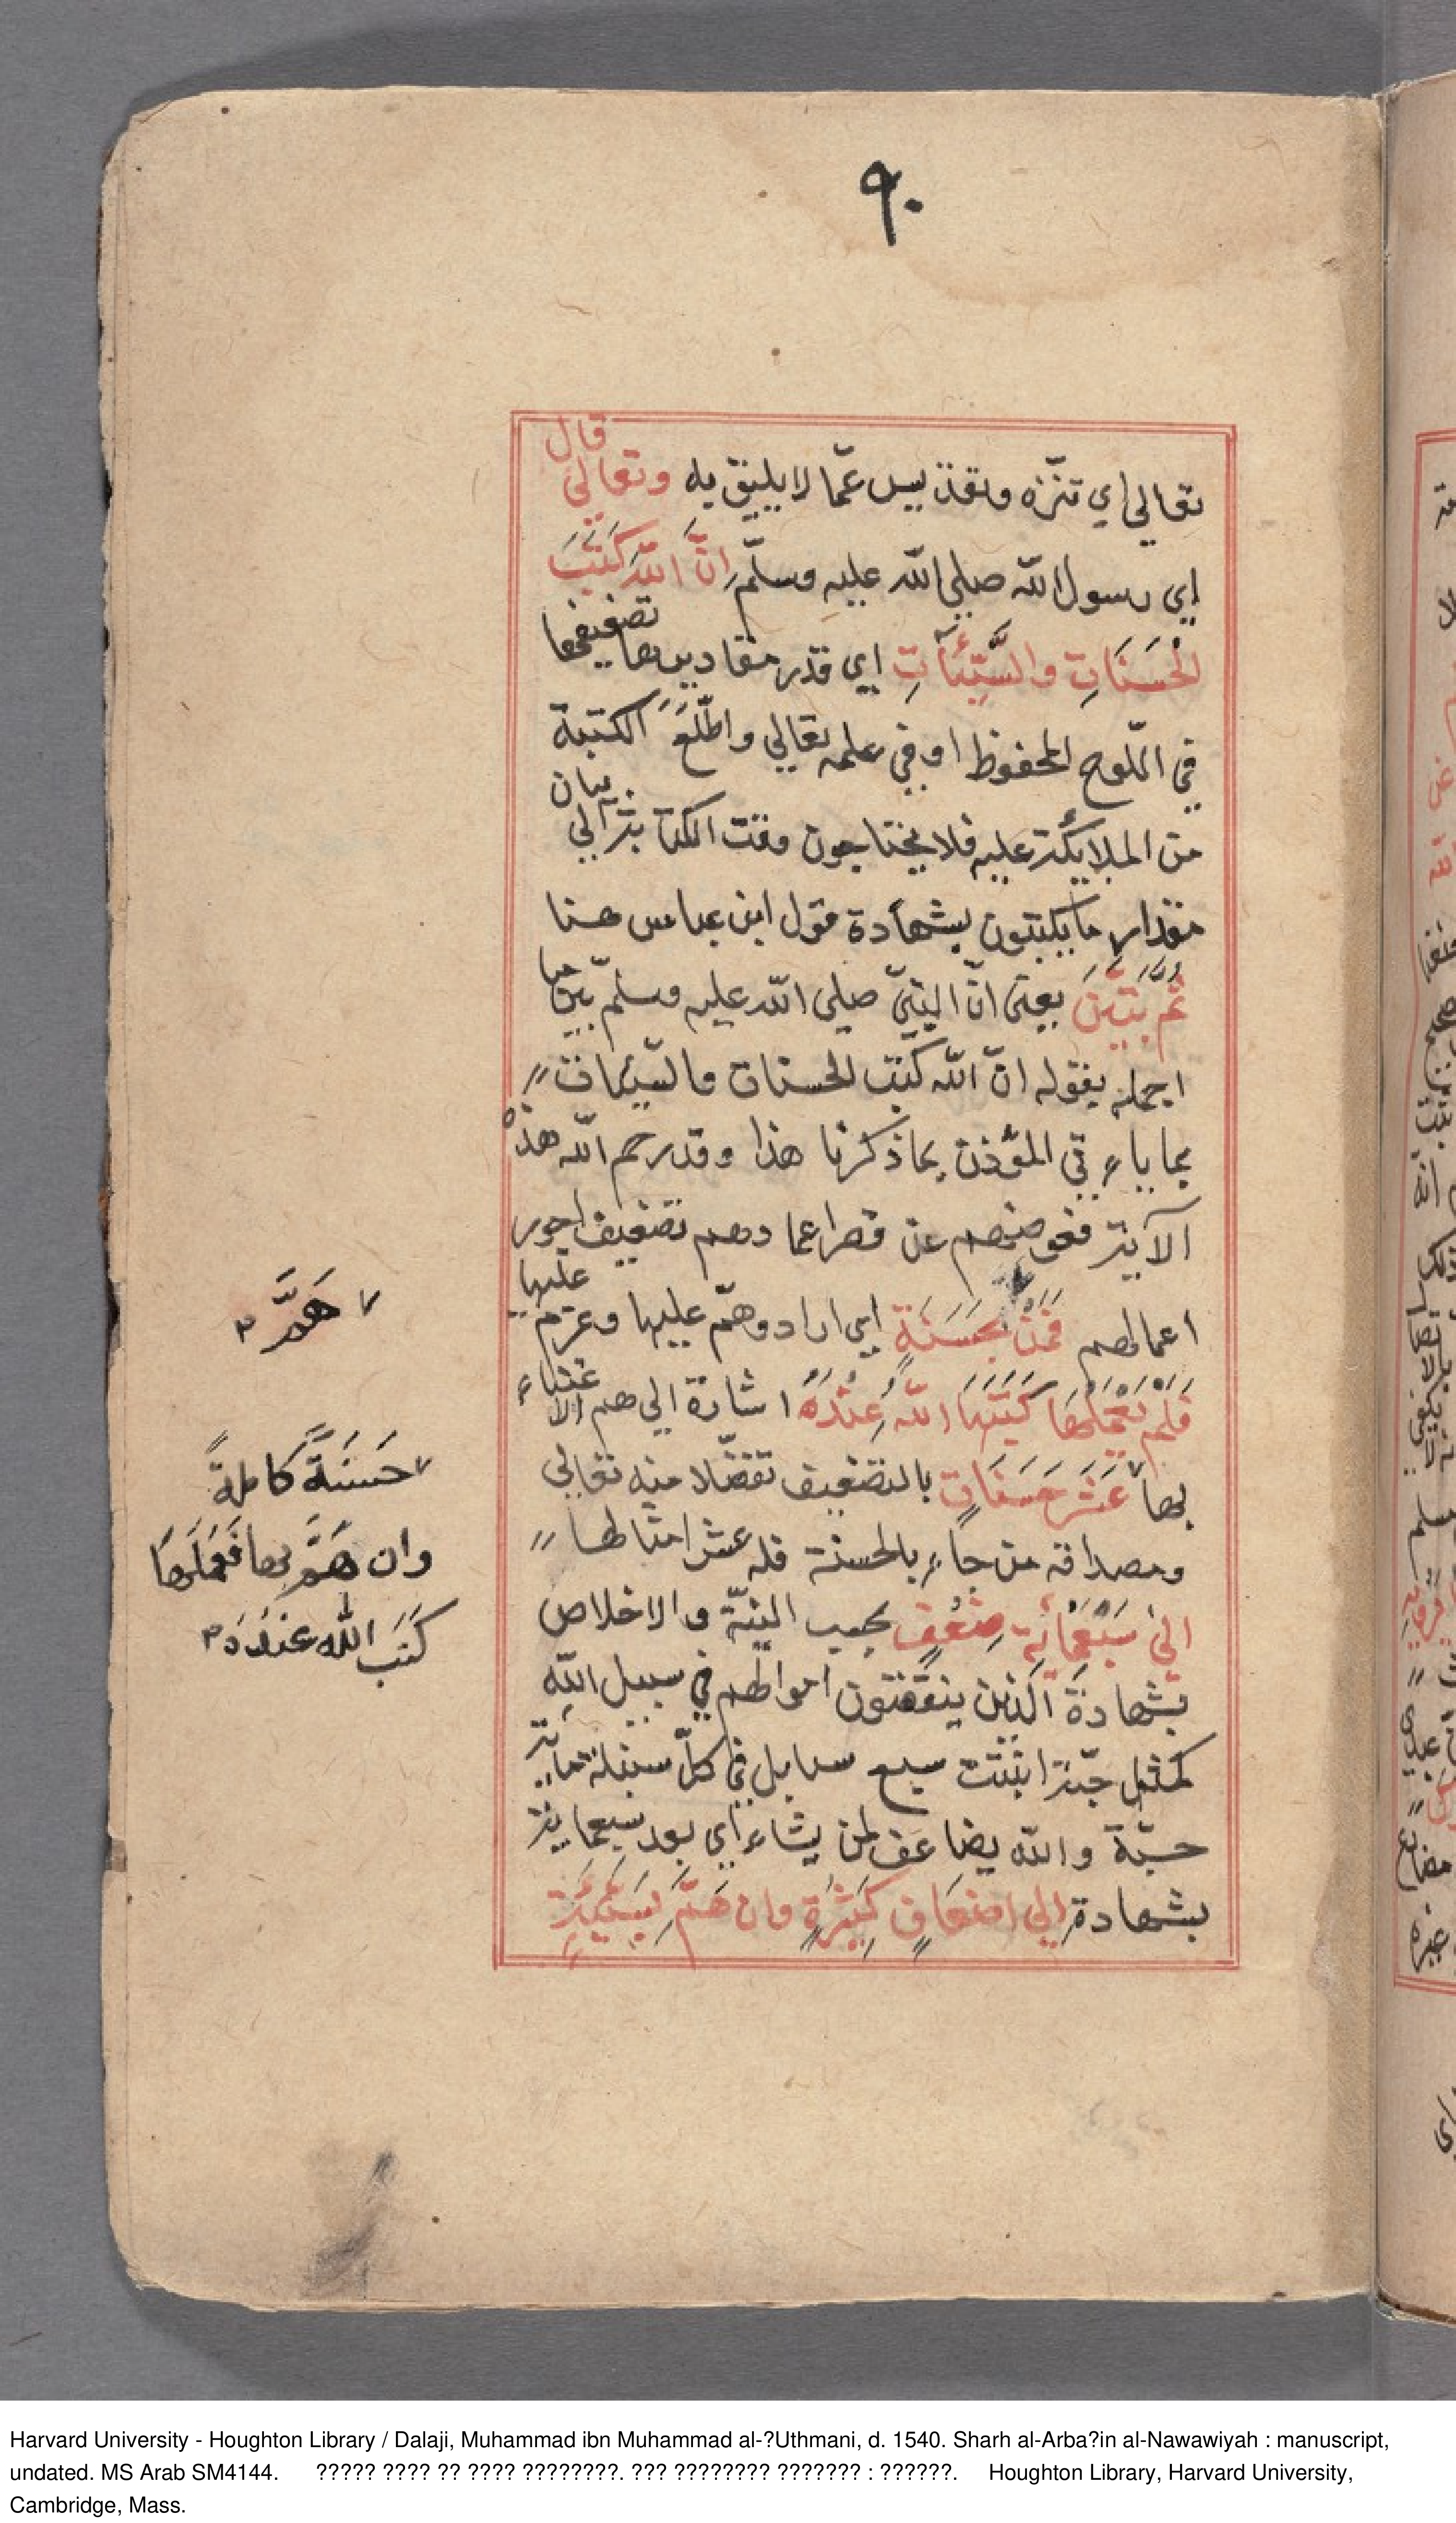 ٩٠
قال
تعالى اي تنزه وتقدس عمّا لا يليق به وتعالى
اي رسول الله صلى الله عليه وسلّم اِنَّ اللهَ كَتَبَ
تضعيفها
الْحَسَنَاتِ والسَّيِّئَآتِ اي قدر مقاديرها
في اللّوح المحفوظ او في علمه تعالى واطّلَعَ الكتبة
بيان
من الملايكة عليه فلا يحتاجون وقت الكتابة الى
مقدار ما يكتبون بشهادة قول ابن عباس هنا
ثُمَّ بَيَّنَ يعنى انّ النبيّ صلى الله عليه وسلّم بيّن ما
اجمله بقوله انّ الله كتب الحسنات والسّيئات
بما ياءتي المؤذن بما ذكرنا هذا وقد رحم الله هذه
الآية فعوضهم عن قصر اعمارهم تضعيف اجور
عليها
اعمالهم فمَنْ بحَسَنَةٍ اي اراد وهمّ عليها وعزم
فَلَمْ يَعْمَلْهَا كَتَبَهَا اللهُ عِنْدَهُ اشارة الى هم الا
عتناء
بها عَشَرَ حَسَنَاتٍ بالتضعيف تفضّلا منه تعالى
ومصداقه من جاء بالحسنة فله عشر امثالها
الى سَبْعِمِائَةِ ضِعْفٍ بحسب النيّة والاخلاص
بشهادة الّذين ينفقون اموالهم في سبيل الله
كمثل حبّة انبتت سبع سنابل في كلّ سنبلة ماية
حبّة والله يضاعف لمن يشاء اي بعد سبعماية
بشهادة الى اضعافٍ كَثِيْرَةٍ وان هَمَّ بِسَيِّئَةٍ
هَمَّ
حَسَنَةً كاملةً
وان هَمَّ بها فَعَمَلَهَا
كَتَبَ الله عندَهَ
Harvard University - Houghton Library / Dalaji, Muhammad ibn Muhammad al-?Uthmani, d. 1540. Sharh al-Arba?in al-Nawawiyah : manuscript,
undated. MS Arab SM4144. ????? ???? ?? ???? ????????. ??? ???????? ??????? : ??????. Houghton Library, Harvard University,
Cambridge, Mass.